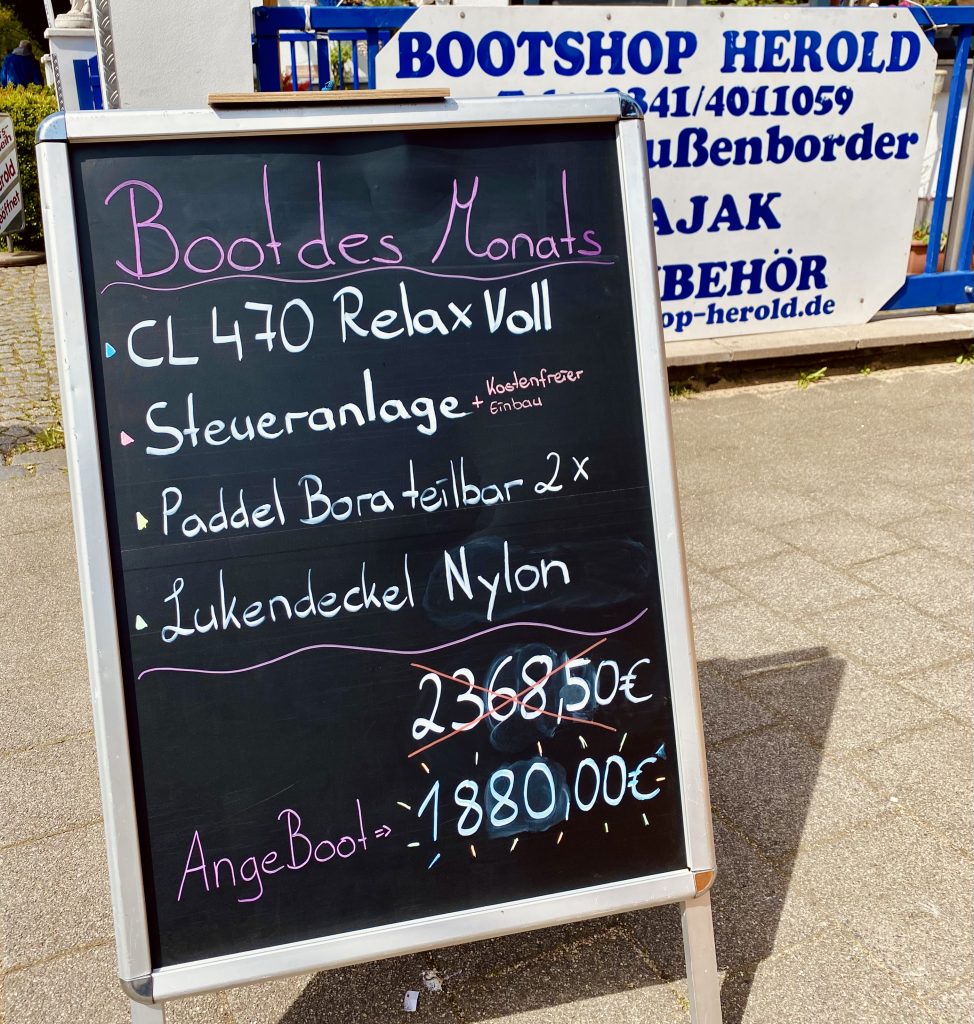 BOOTSHOP HEROLD
0341/4011059
ußenborder
AJAK
BEHÖR
op-herold.de
Boot des Monats
CL 470 Relax Voll
Steueranlage + Kostenfreier
Einbau
Paddel Bora teilbar 2x
Lukendeckel Nylon
2368,50€
AngeBoot => 1880,00€
erold
eöffnet